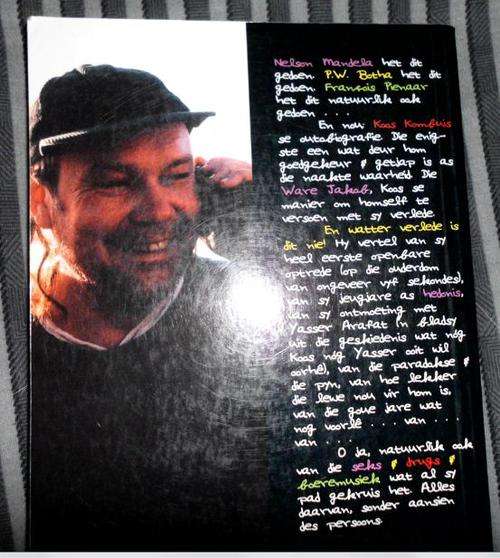 Nelson Mandela het dit
gedoen. P.W. Botha het dit
gedoen. Francois Pienaar
het dit natuurlik ook
gedoen ...
En nou Koos Kombuis
se outobiografie. Die enig-
ste een wat deur hom
goedgekeur & getjap is as
die naakte waarheid. Die
Ware Jakob, Koos se
manier om homself te
versoen met sy verlede.
En watter verlede is
dit nie! Hy vertel van sy
heel eerste openbare
optrede (op die ouderdom
van ongeveer vyf sekondes),
van sy jeugjare as hedonis,
van sy ontmoeting met
Yasser Arafat (n bladsy
uit die geskiedenis wat nóg
Koos nóg Yasser ooit wil
oorhê), van die paradokse &
die pyn, van hoe lekker
die lewe nou vir hom is,
van die goue jare wat
nog voorlê ... van ...
van ...
O ja, natuurlik ook
van die seks & drugs &
boeremusiek wat al sy
pad gekruis het. Alles
daarvan, sonder aansien
des persoons.